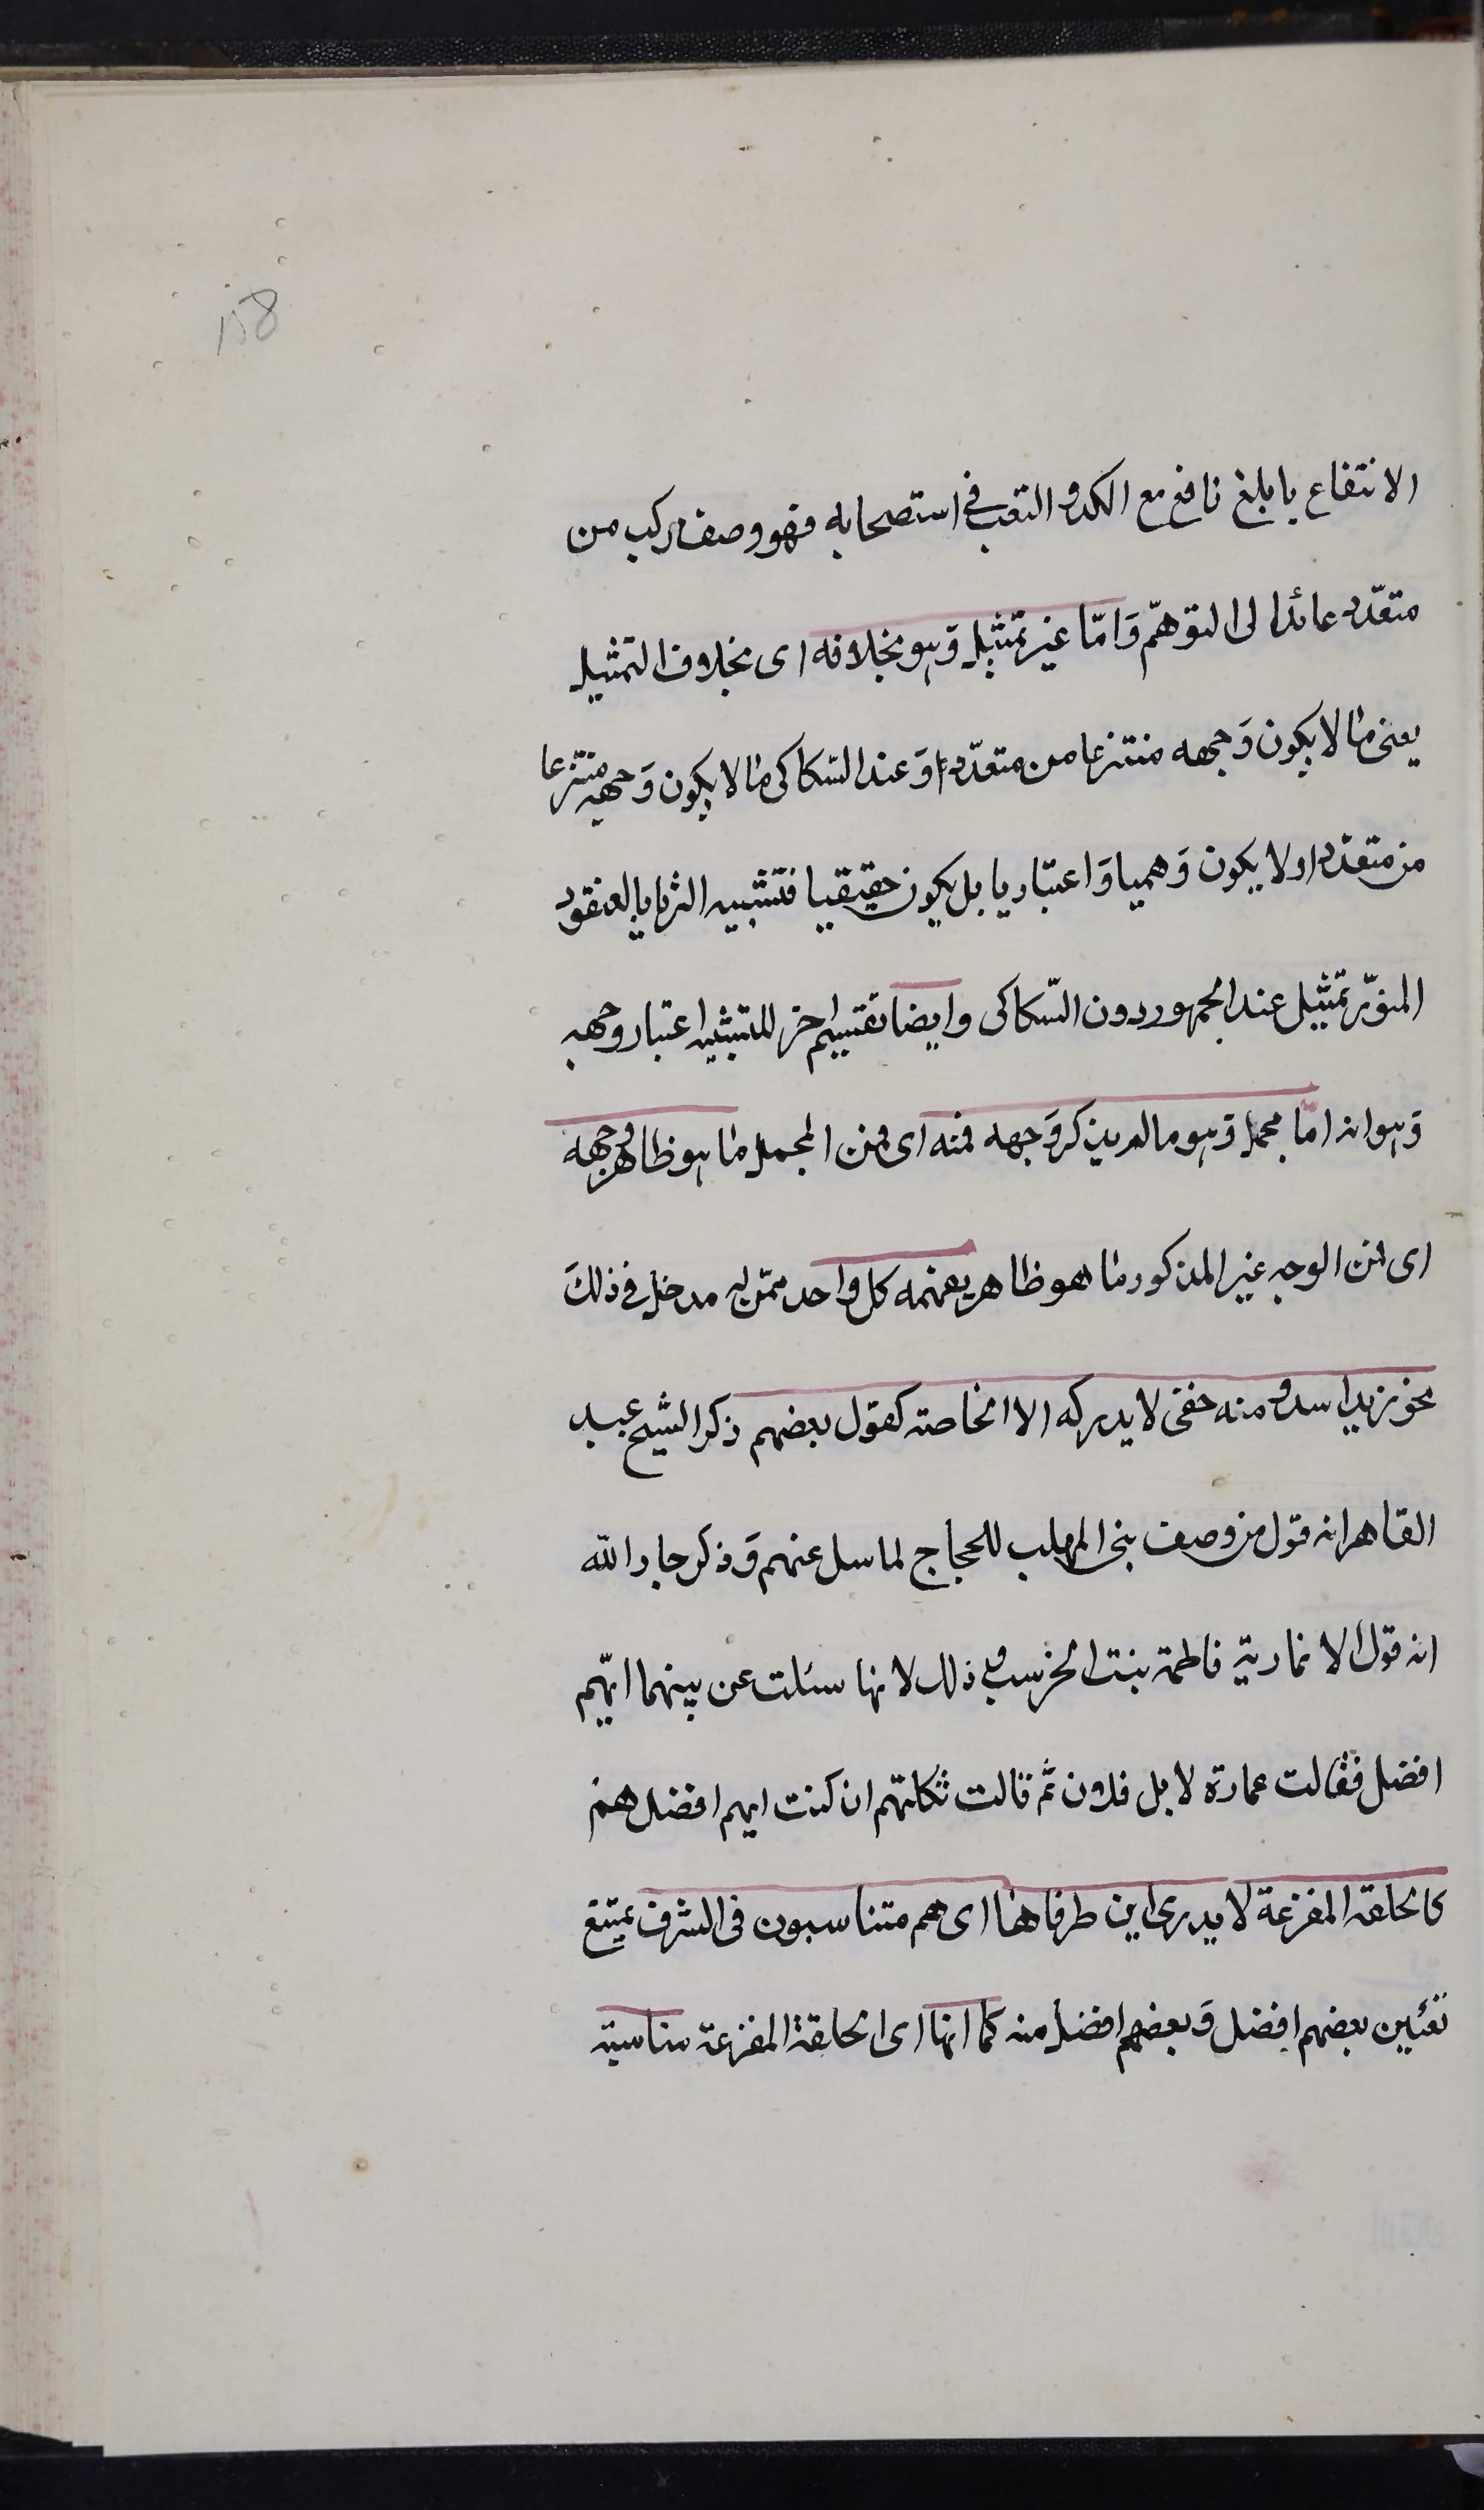 158
الانتفاع بابلغ نافع مع الكد و التعب فى استصحابه فهو وصف مركب من
متعدّد عائد الى التوهّم وَامّا غير تمثيل وَهو بخلافه اى بخلاف التمثيل
يعنى ما لا يكون وَجهه منتزعا من متعدّد اوَ عند السّكاكى ما لا يكون وَجهه منتزعا
من متعدّد او لا يكون وَهميا وَاعتباريا بل يكون حقيقيا فتشبيه الثريا بالعنقود
المنوّر تمثيل عند الجمهور دون السّكاكى وايضا تقسيم اخر للتشبيه اعتبار وجهه
وَهو انه امّا مجمل وَهو ما لم يذكر وَجهه فمنه اى فمن المجمل ما هو ظاهر وجهه
اى فمن الوجه غير المذكور ما هو ظاهر يفهمه كل واحد ممّن له مدخل فى ذلكَ
نحو زيد اسد و منه خفى لا يدركه الا الخاصة كقول بعضهم ذكر الشيخ عبد
القاهر انه قول من وصف بنى المهلب للحجاج لما سل عنهم وَذكر جار الله
انه قول الانمارية فاطمة بنت الخرسب و ذلك لانها سئلت عن بينهما ايّهم
افضل فقالت عمارة لا بل فلان ثم قالت ثكلتهم ان كنت ايهم افضل هم
كالحلقة المفرغة لا يدرى اين طرفاها اى هم متناسبون فى الشرف يمتنع
تعيين بعضهم افضل وَبعضهم افضل منه كما انها اى الحلقة المفرغة مناسبة